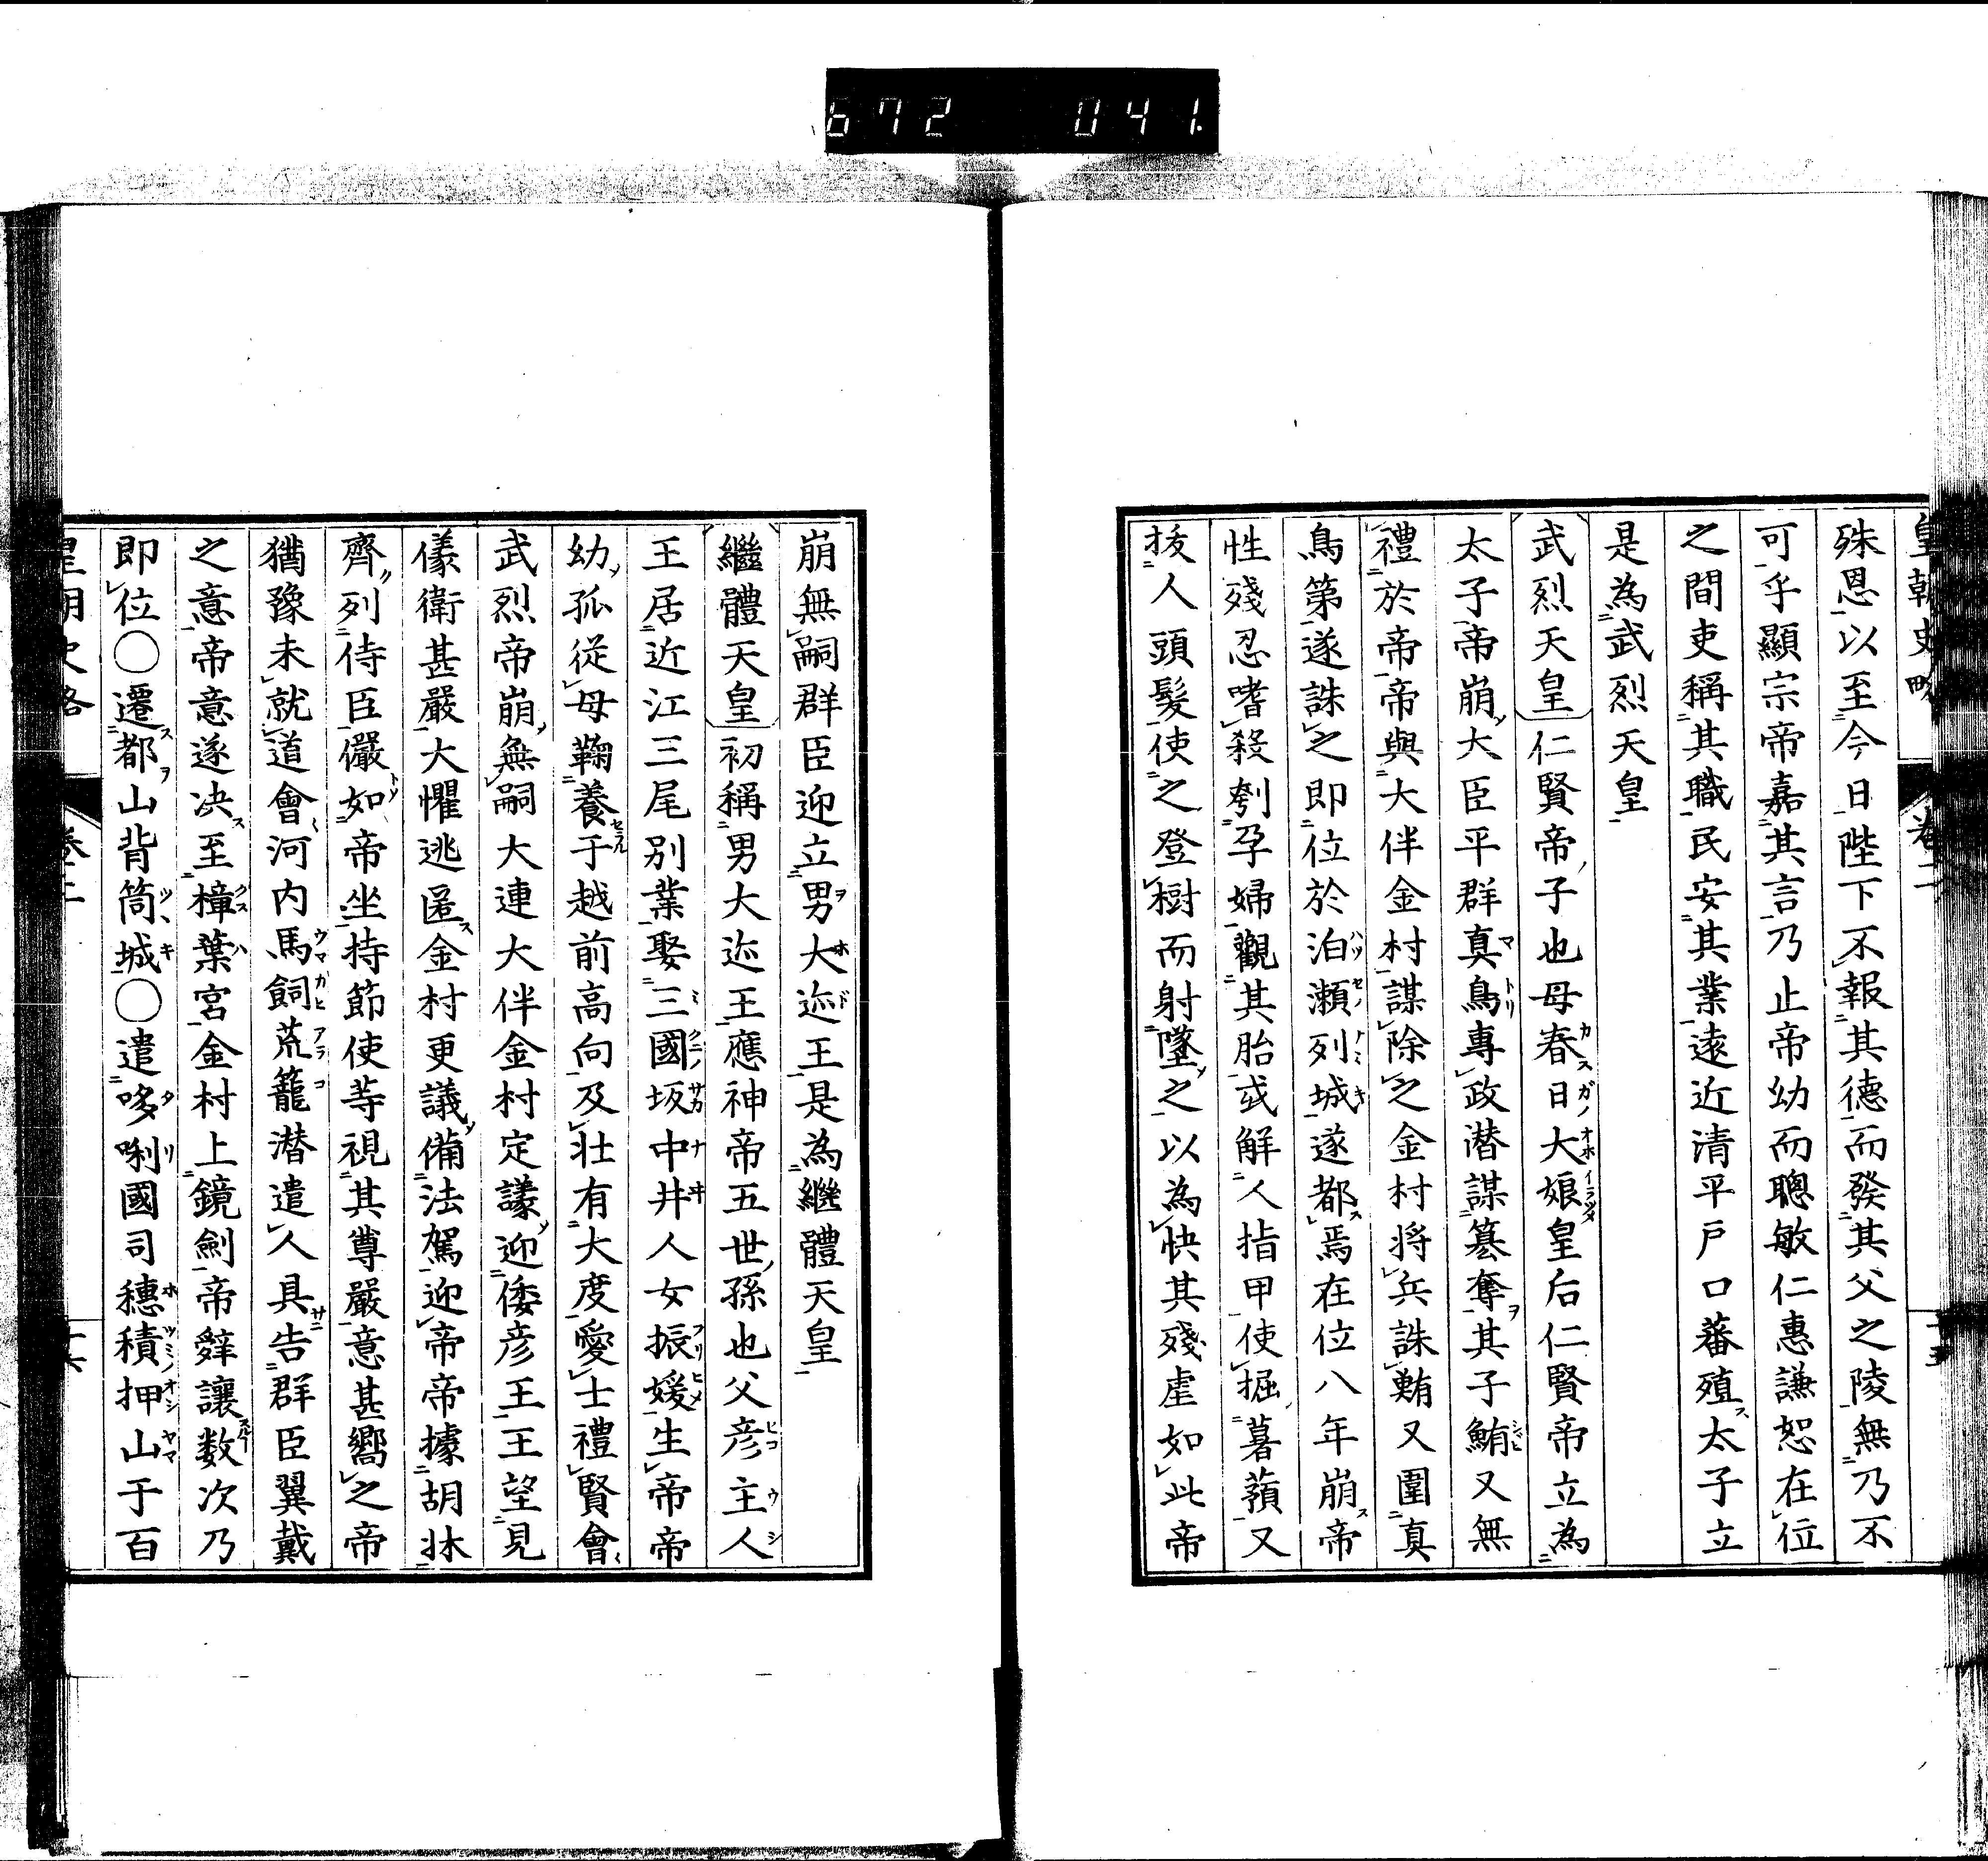 672 041
皇朝史略 卷二 十五
殊恩以至今日陛下不報其德而發其父之陵無乃不
可乎顯宗帝嘉其言乃止帝幼而聰敏仁惠謙恕在位
之間吏稱其職民安其業遠近清平戸口蕃殖太子立
是為武烈天皇
武烈天皇仁賢帝子也母春日大娘皇后仁賢帝立為
太子帝崩大臣平群真鳥專政潜謀簒奪其子鮪又無
禮於帝帝與大伴金村謀除之金村將兵誅鮪又圍真
鳥第遂誅之即位於泊瀬列城遂都焉在位八年崩帝
性殘忍嗜殺刳孕婦觀其胎或解人指甲使掘暑蕷又
拔人頭髮使之登樹而射墜之以為快其殘虐如此帝
崩無嗣群臣迎立男大迹王是為繼體天皇
繼體天皇初稱男大迹王應神帝五世孫也父彦主人
王居近江三尾別業娶三國坂中井人女振媛生帝帝
幼孤從母鞠養于越前高向及壯有大度愛士禮賢會
武烈帝崩無嗣大連大伴金村定議迎倭彦王王望見
儀衛甚嚴大懼逃匿金村更議備法駕迎帝帝據胡牀
齊列侍臣儼如帝坐持節使等視其尊嚴意甚嚮之帝
猶豫未就道會河内馬飼荒籠潜遣人具告群臣翼戴
之意帝意遂决至樟葉宮金村上鏡劍帝辭讓数次乃
即位〇遷都山背筒城〇遣哆唎國司穗積押山于百
皇朝史略 卷二 十六